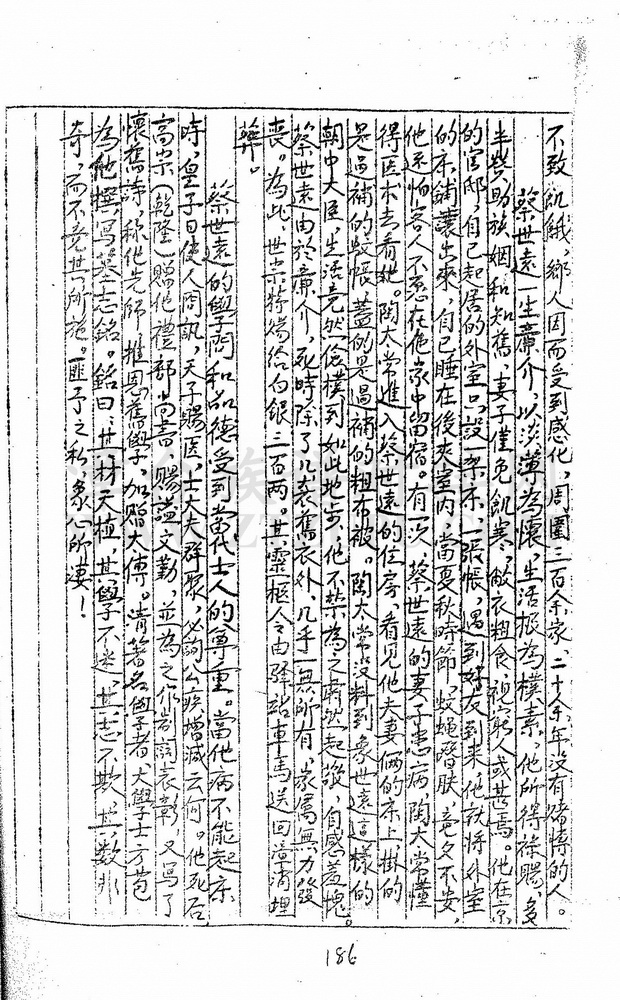 不致飢餓，鄉人因而受到感化，周圍三百余家，二十余年没有賭博的人。
蔡世遠一生廉介，以淡薄為懷，生活極為樸素，他所得祿賜，多
半贊助族姻和知舊，妻子僅免飢寒，敝衣粗食，視窮人或甚焉。他在京
的官邸，自己起居的外室只設一架床，一張帳，遇到好友到來，他就將外室
的床鋪讓出來，自己睡在後夾室内，當夏秋時節，蚊蠅噆肤，竟夕不安，
他还怕客人不忍在他家中留宿。有一次，蔡世遠的妻子患病，陶太常懂
得医术去看她。陶太常進入蔡世遠的住房，看見他夫妻倆的床上，掛的
是過補的蚊帳，蓋的是過補的粗布被。陶太常没料到象世遠這樣的
朝中大臣，生活竟然俭樸到如此地步，他不禁為之肅然起敬，自感羞愧。
蔡世遠由於廉介，死時除了几衣舊衣外，几乎一無所有，家属無力發
喪。為此，世宗特賜給白銀三百两。其靈柩令由驿站車馬送回漳浦埋
葬。
蔡世遠的學問和品德受到當代士人的尊重。當他病不能起床
時，皇子日使人問訊，天子賜医，士大夫群聚，必詢公疾增減云何。他死后，
高宗（乾隆）贈他禮部尚書，賜謚文勤，並為之作制詞表彰，又寫了
懷舊詩，称他先師，推恩舊學，加贈太傅。清著名學者、大學士方苞
為他撰寫墓志銘。銘曰：其材天植，其學不迷，其志不欺，其数非
奇，而不竟其所施。匪予之私，象心所凄！
186